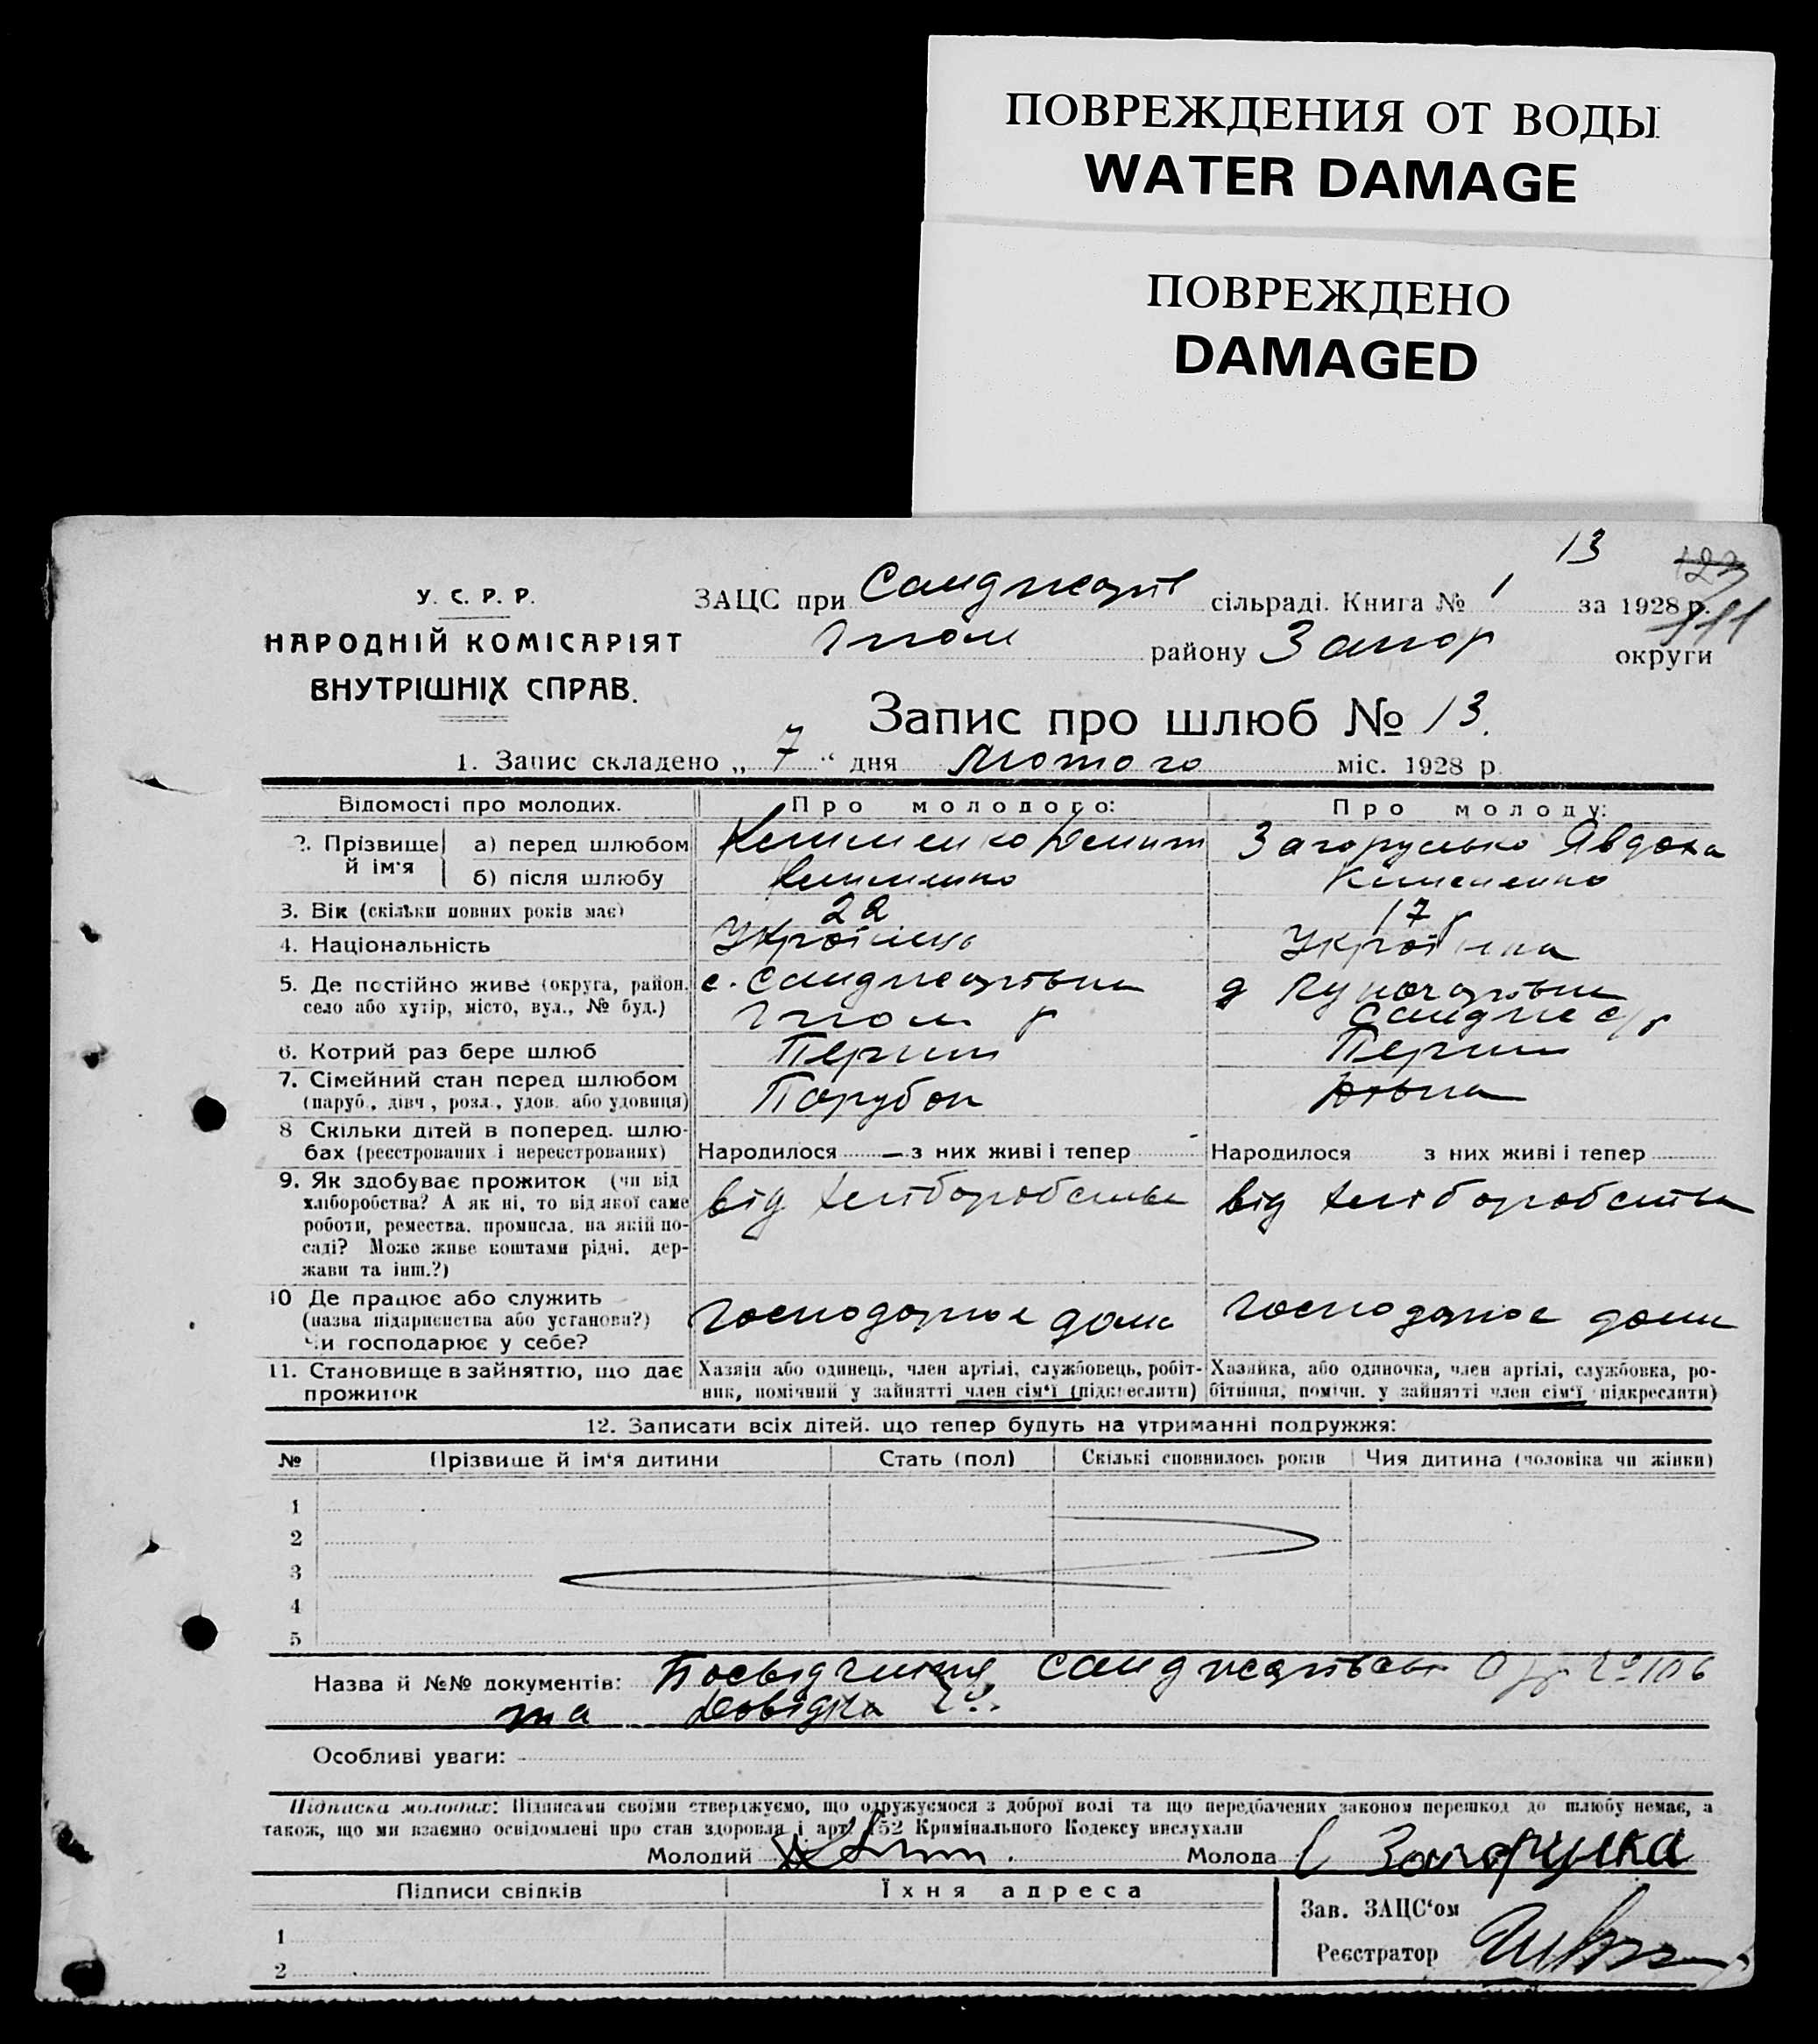 ПОВРЕЖДЕНИЯ ОТ ВОДЫ
WATER DAMAGE
ПОВРЕЖДЕНО
DAMAGED
13
123
111
У. С. Р. Р.
НАРОДНІЙ КОМІСАРІЯТ
ВНУТРІШНІХ СПРАВ.
ЗАЦС при сільраді. Книга № 1 за 1928 р.
району Запор округи
Запис про шлюб № 13.
1. Запис складено „ 7 “ дня Лютого міс. 1928 р.
Відомості про молодих. Про молодого: Про молоду:
2. Прізвище й ім'я а) перед шлюбом Загорулько Явдоха
б) після шлюбу
3. Вік (скільки повних років має) 22 17 р
4. Національність Українець Українка
5. Де постійно живе (округа, район, село або хутір, місто, вул., № буд.)
6. Котрий раз бере шлюб Перший Перший
7. Сімейний стан перед шлюбом (паруб., дівч., розл., удов. або удовиця) Парубок
8 Скільки дітей в поперед. шлюбах (реєстрованих і нереєстрованих) Народилося — з них живі і тепер Народилося з них живі і тепер
9. Як здобуває прожиток (чи від хліборобства? А як ні, то від якої саме роботи, ремества, промисла, на якій посаді? Може живе коштами рідні, держави та інш.?) від хліборобства від хліборобства
10 Де працює або служить (назва підприємства або установи?) Чи господарює у себе? господарює дома господарює дома
11. Становище в зайняттю, що дає прожиток Хазяїн або одинець, член артілі, службовець, робітник, помічний у зайнятті член сім'ї (підкреслити) Хазяйка, або одиночка, член артілі, службовка, робітниця, помічн. у зайнятті член сім'ї підкреслити)
12. Записати всіх дітей, що тепер будуть на утриманні подружжя:
№ Прізвище й ім'я дитини Стать (пол) Скількі сповнилось років Чия дитина (чоловіка чи жінки)
1
2
3
4
5
Назва й №№ документів: Посвідчення
та довідка
Особливі уваги:
Підписка молодих: Підписами своїми стверджуємо, що одружуємося з доброї волі та що передбачених законом перешкод до шлюбу немає, а
також, що ми взаємно освідомлені про стан здоровля і арт. 152 Кримінального Кодексу вислухали
Молодий Молода Загорулка
Підписи свідків Їхня адреса
Зав. ЗАЦС'ом
1
Реєстратор
2